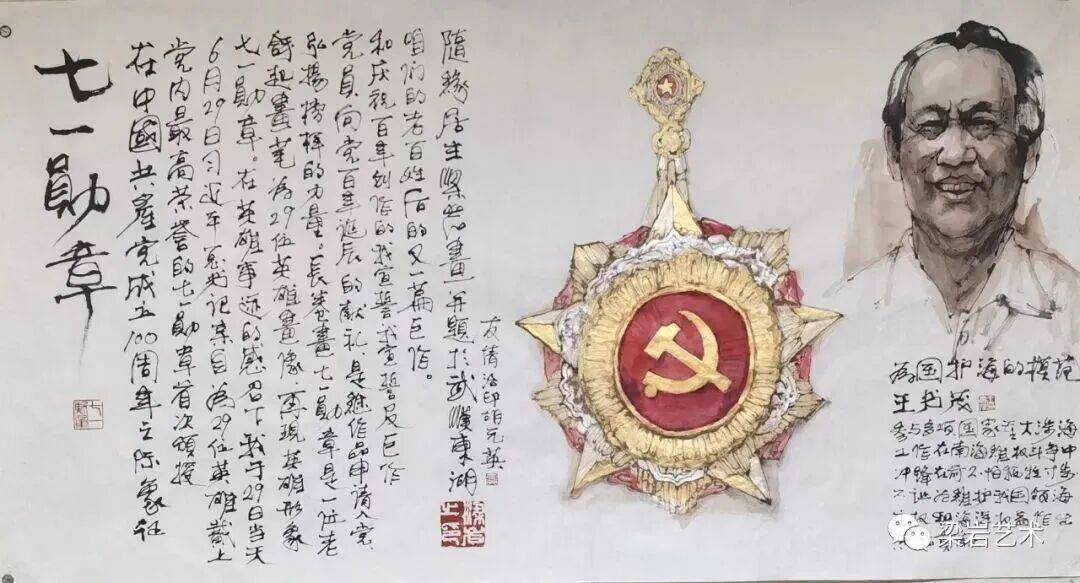 七一勋章
在中國共產党成立100周年之际象征
党内最高荣誉的七一勋章首次颁授
6月29日习近平总书记亲自为29位英雄戴上
七一勋章。在英雄事迹的感召下我于29日当天
起畫笔为29位英雄畫像再现英雄形象
弘揚榜样的力量。長卷畫七一勋章是一位老
党员向党百年诞辰的献礼是继作品申请入党
和庆祝百年创作的我宣誓我宣誓及巨作
咱们的老百姓后的又一篇巨作。
隨缘居士梁岩畫并題於武漢東湖
友情治印胡元英
为国护海的模范
王书茂
参与多项国家重大涉海
工作在南海维权斗争中
冲锋在前不怕牺牲寸步
不让 维护我国领海
主权和海洋权益作出
梁岩艺术